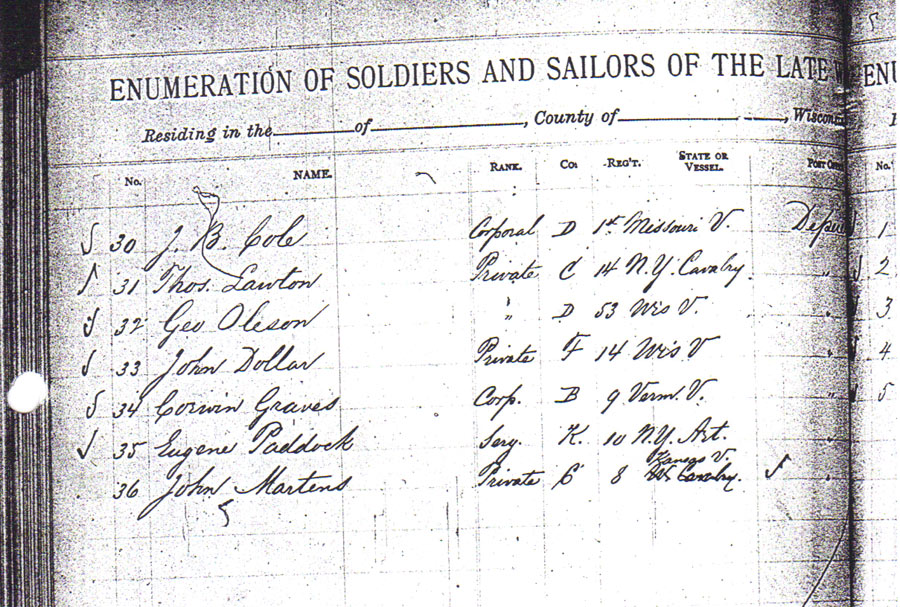 5
ENUMERATION OF SOLDIERS AND SAILORS OF THE LATE W ENU
Residing in the of , County of , Wisconsin
No. NAME. RANK. Co. REG'T. STATE OR VESSEL. POST OFFICE No.
30 J. B. Cole Corporal D 1st Missouri V. 1
31 Thos. Lawton Private C 14 N.Y. Cavalry. " 2
32 Geo Oleson " D 53 Wis V. " 3
33 John Dollar Private F 14 Wis V " 4
34 Corwin Graves Corp. B 9 Verm. V. " 5
35 Eugene Paddock Serg. K. 10 N.Y. Art. "
Kansas V.
36 John Martens Private C 8 Cavalry. "
5